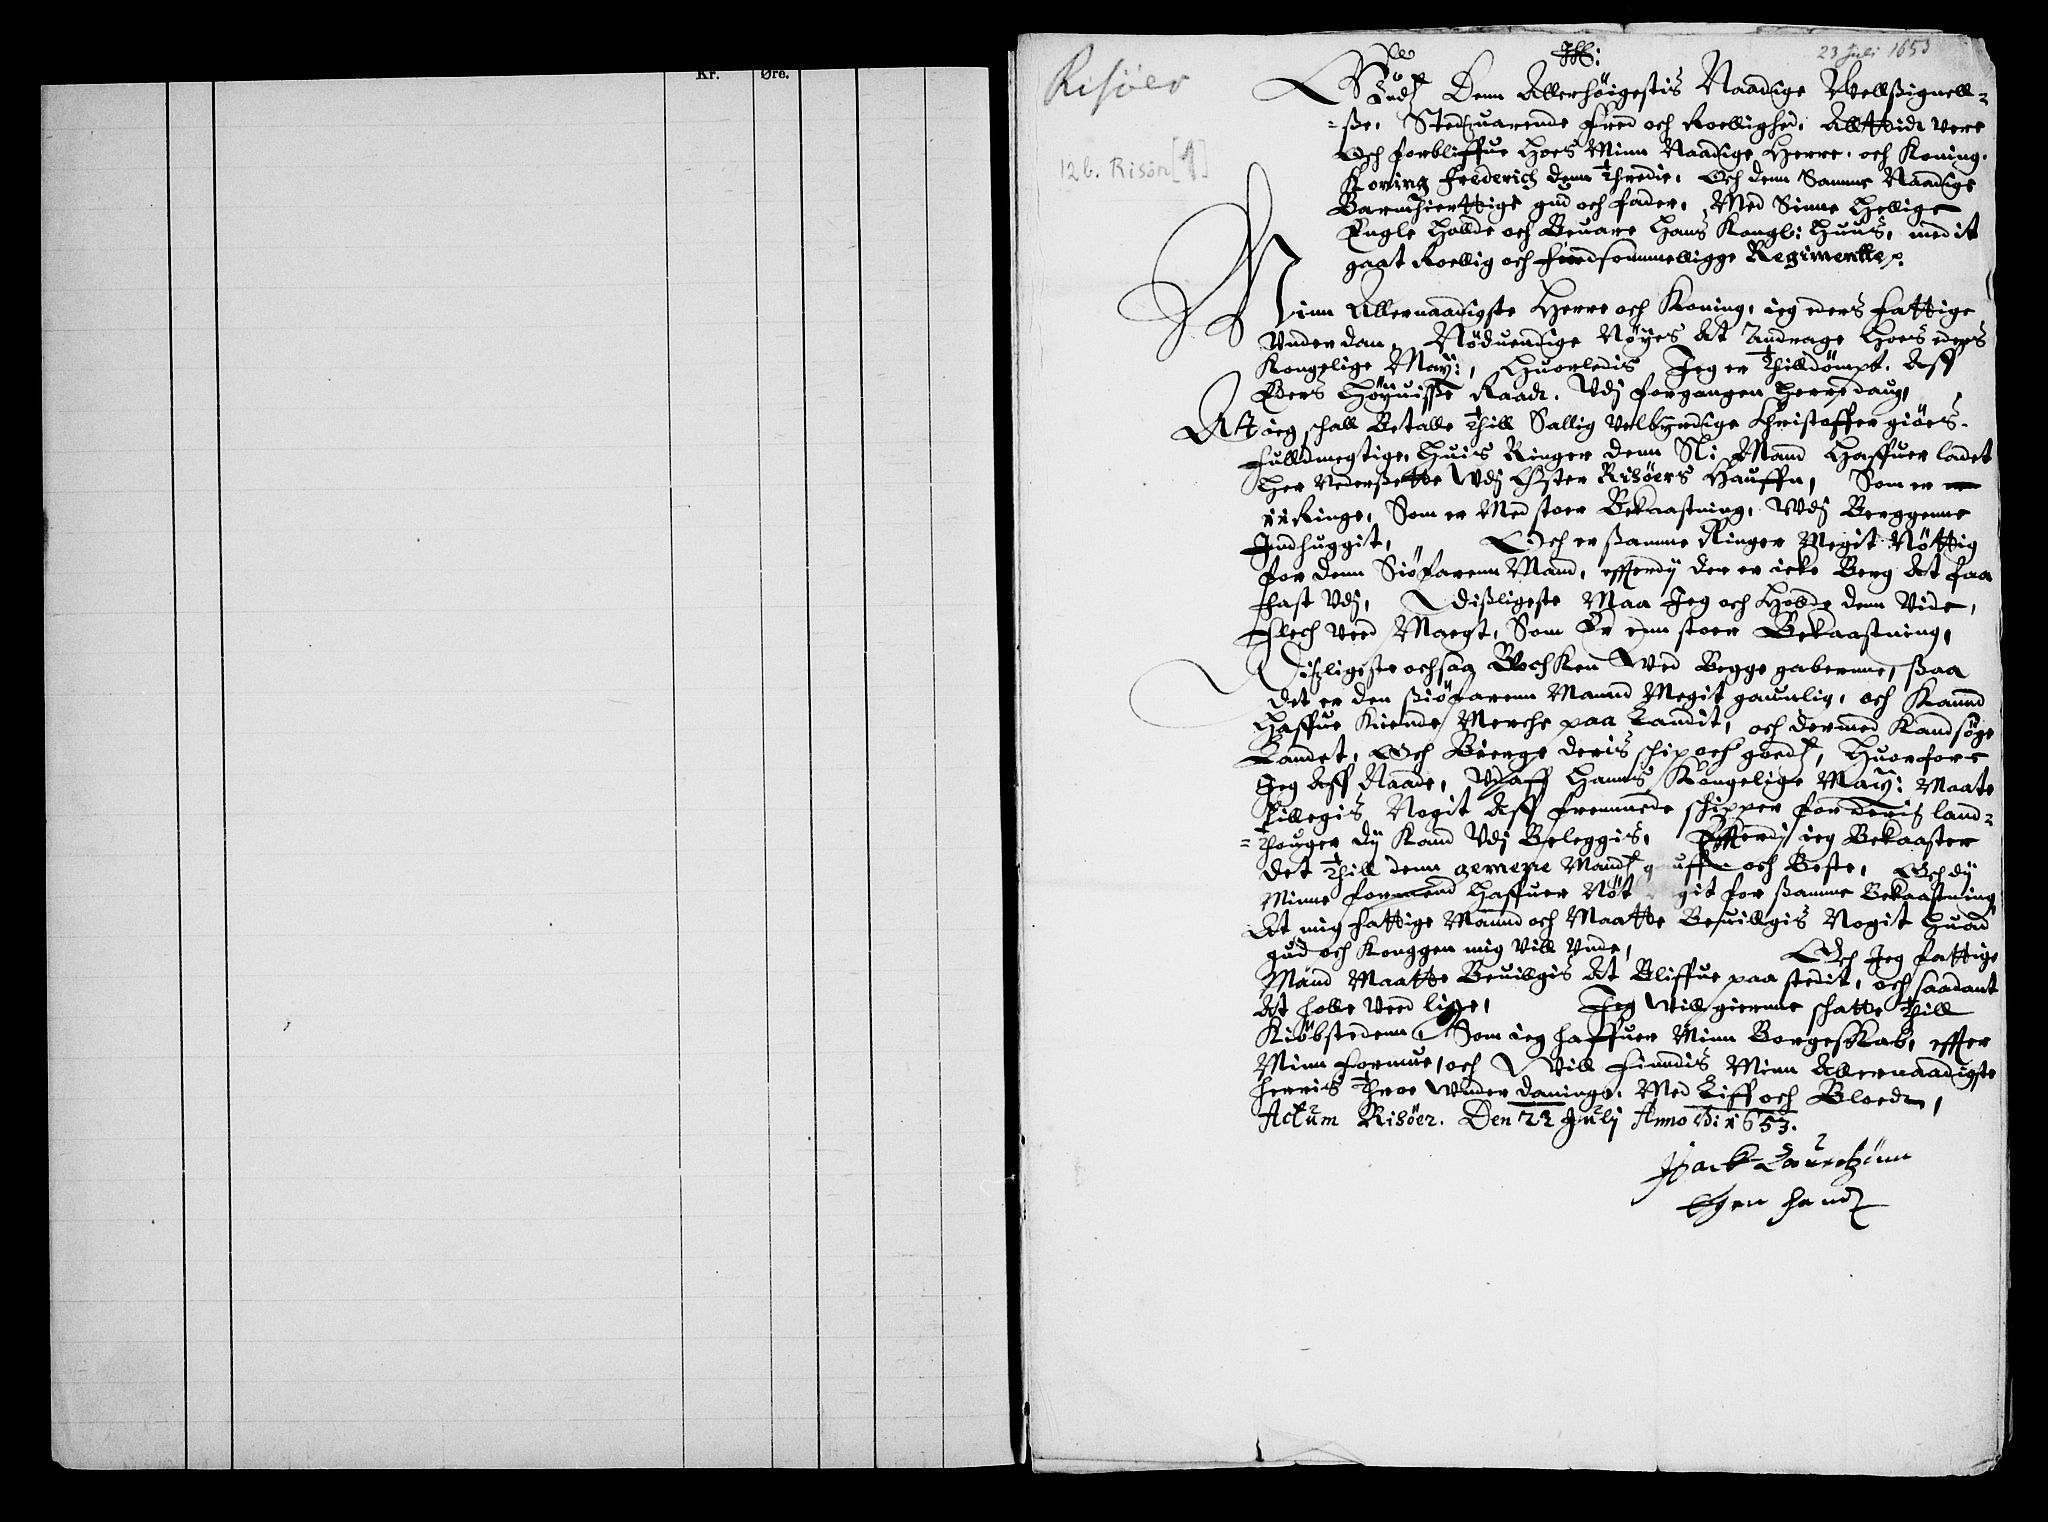 Kr.
Øre.
Risöer
12b. Risör [1]
23 Juli 1653
Jhs:
Gudz Denn Allerhöigestis Naadige Vellßignell=
=ße, Stedtzuarende fred och Roellighed, Alltiidt vere
Och forbliffue hoes Minn Naadige Herre, och Koning,
Koning Frederich denn Thredie, Och denn Samme Naadige
Barmhierttige gud och fader, Med Sinne Hellige
Engle holde och Beuare Hans Kongl: Huus, med it
gaat Roellig och fredsommelligge Regimentte,
Minn Allernaadigste Herre och Koning, ieg eders fattige
Vnderdan, Nöduendige Nöyes At Andrage hoes eders
Kongelige May:, Huorledis Jeg er Thilldömpt, Aff
Eders Höyuisse Raadt, Vdj forgangen herredaug,
At ieg schall Betalle Thill Sallig Velbyrdige Christoffer giöes
fulldmegtige, Huis Ringer denn Sl: Mand Haffuer ladet
her Nedersette Vdj Öster Risöers Hauffn, Som er
11 Ringe, Som er Med stoer Bekaastning, Vdj Berggenne
Jndhuggit, Och er ßamme Ringer Megit Nöttig
for denn Siöfarenn Mand, efferdj der er icke Berg At faa
fhast Vdj, dißligeste Maa Jeg och Holde denn Vide,
flech Veed Magt, Som Er enn stoer Bekaastning,
Dißligeste ochsaa Wochken Wed Begge gaberinne, ßaa
det er den ßiöfarenn Mannd Megit gaunlig, och Kannd
Haffue Kiende Merche paa Landit, och dermed Kand söge
Landet, Och Bierge deris schip och goedz, Huorfore
Jeg Aff Naade, Vdaff Hanns Kongelige May: Maate
Billegis Nogit Aff fremmede schipper for deris land=
=thouger dy Kand Vdj Beleggis, Efferdj ieg Bekaaster
det Thill denn gemene Mandz och Beste, Och dy
Minne formend Haffuer Nöt for ßamme Bekaastning,
At mig fattige Mannd och Maatte Beuillgis Nogit Huad
gud och Konggen mig Vill Vnde, Och Jeg fattige
Mand Maatte Beuillgis At Bliffue paa stedit, och saadant
At holle Veed lige, Jeg Will gierrne schatte Thill
Kiöbstedenn, Som ieg haffuer Minn Borgeskab, effter
Minn formue, och Will findis Minn Allernaadigste
Herris Throe Wnderdaninge, Med Liff och Bloedt,
Actum Risöer. Den 23 Julj Anno Di 1653.
Jsack Lauretzönn
Egen handt